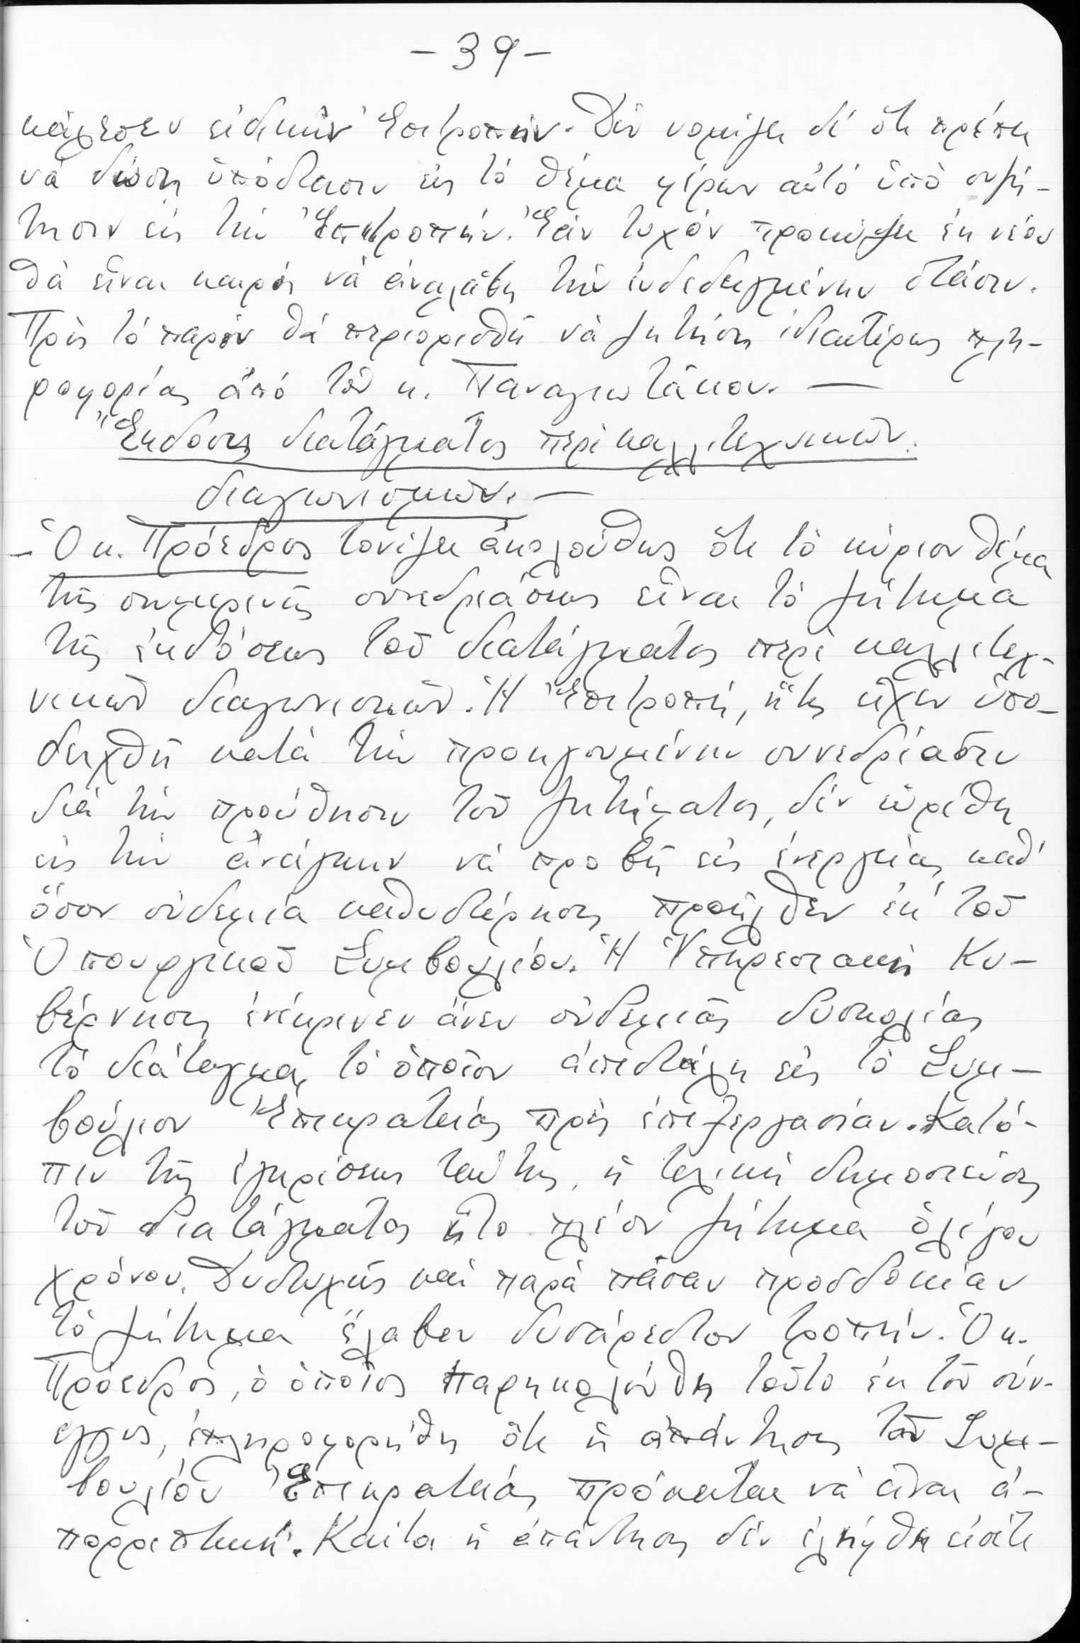 -39-
κάλεσεν εἰδικὴν Ἐπιτροπήν. Δὲν νομίζει δὲ ὅτι πρέπει
νὰ δώσῃ ὑπόστασιν εἰς τὸ θέμα φέρων αὐτὸ ὑπὸ συζή-
τησιν εἰς τὴν Ἐπιτροπήν. Ἐὰν τυχὸν προκύψει ἐκ νέου
θὰ εἶναι καιρὸς νὰ ἀναλάβῃ τὴν ἐνδεδειγμένην στάσιν.
Πρὸς τὸ παρὸν θὰ περιορισθῇ νὰ ζητήσῃ ἰδιαιτέρως πλη-
ροφορίας ἀπὸ τὸν κ. Παναγιωτάκον. —
Ἔκδοσις διατάγματος περὶ καλλιτεχνικῶν
διαγωνισμῶν. —
- Ὁ κ. Πρόεδρος τονίζει ἀκολούθως ὅτι τὸ κύριον θέμα
τῆς σημερινῆς συνεδριάσεως εἶναι τὸ ζήτημα
τῆς ἐκδόσεως τοῦ διατάγματος περὶ καλλιτεχ-
νικῶν διαγωνισμῶν. Ἡ Ἐπιτροπή, ἥτις εἶχεν ὑπο-
δειχθῆ κατὰ τὴν προηγουμένην συνεδρίασιν
διὰ τὴν προώθησιν τοῦ ζητήματος, δὲν εὑρέθη
εἰς τὴν ἀνάγκην νὰ προβῇ εἰς ἐνεργείας καθ'
ὅσον οὐδεμία καθυστέρησις προῆλθεν ἐκ τοῦ
Ὑπουργικοῦ Συμβουλίου. Ἡ Ὑπηρεσιακὴ Κυ-
βέρνησις ἐνέκρινεν ἄνευ οὐδεμιᾶς δυσκολίας
τὸ διάταγμα, τὸ ὁποῖον ἀπεστάλη εἰς τὸ Συμ-
βούλιον Ἐπικρατείας πρὸς ἐπεξεργασίαν. Κατό-
πιν τῆς ἐγκρίσεως ταύτης, ἡ τελικὴ δημοσίευσις
τοῦ διατάγματος ἦτο πλέον ζήτημα ὀλίγου
χρόνου. Δυστυχῶς καὶ παρὰ πᾶσαν προσδοκίαν
τὸ ζήτημα ἔλαβεν δυσάρεστον τροπήν. Ὁ κ.
Πρόεδρος, ὁ ὁποῖος παρηκολούθη τοῦτο ἐκ τοῦ σύν-
εγγυς, ἐπληροφορήθη ὅτι ἡ ἀπάντησις τοῦ Συμ-
βουλίου Ἐπικρατείας πρόκειται νὰ εἶναι ἀ-
πορριπτική. Καίτοι ἡ ἀπάντησις δὲν ἐλήφθη